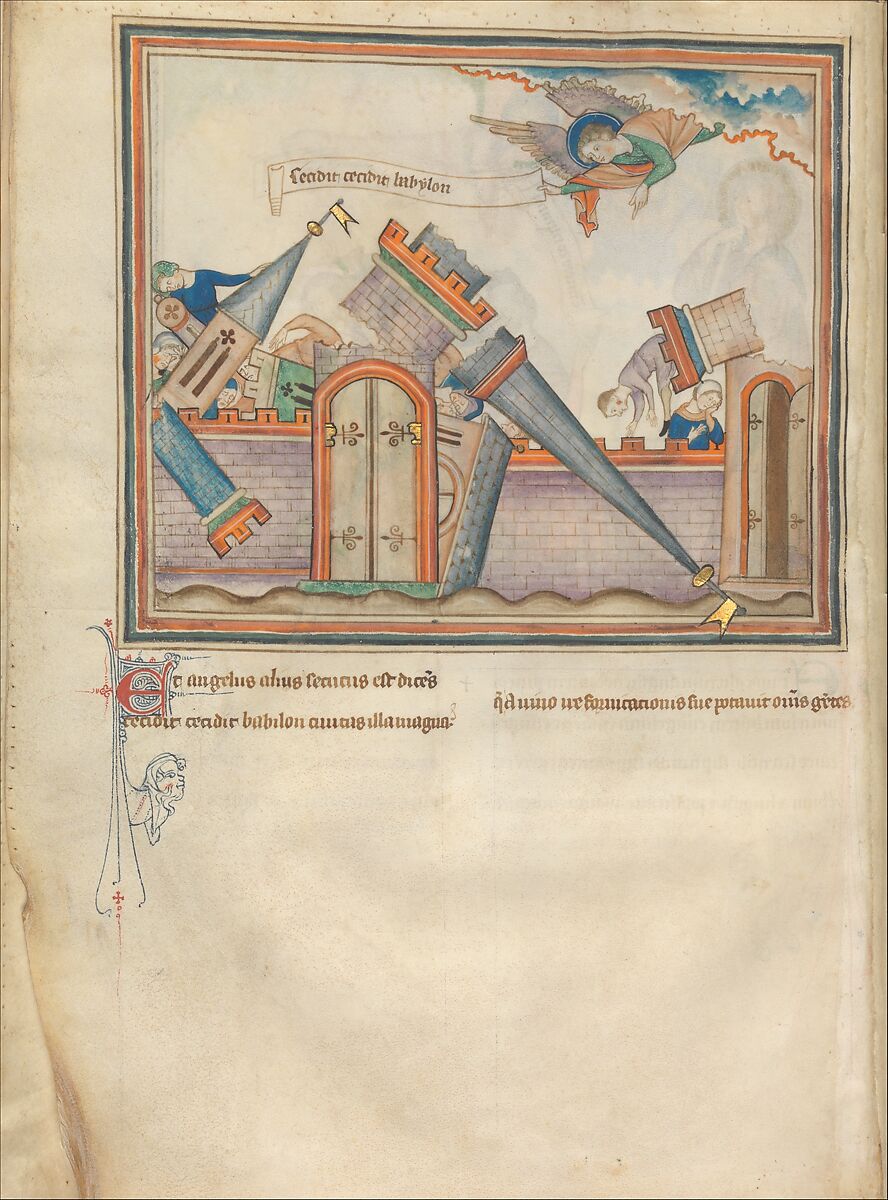 Cecidit cecidit babylon
Et angelus alius secutus est dicēs
cecidit cecidit babilon ciuitas illa magna
q̄ A uino ire fornicationis sue potauit om̄s gētes